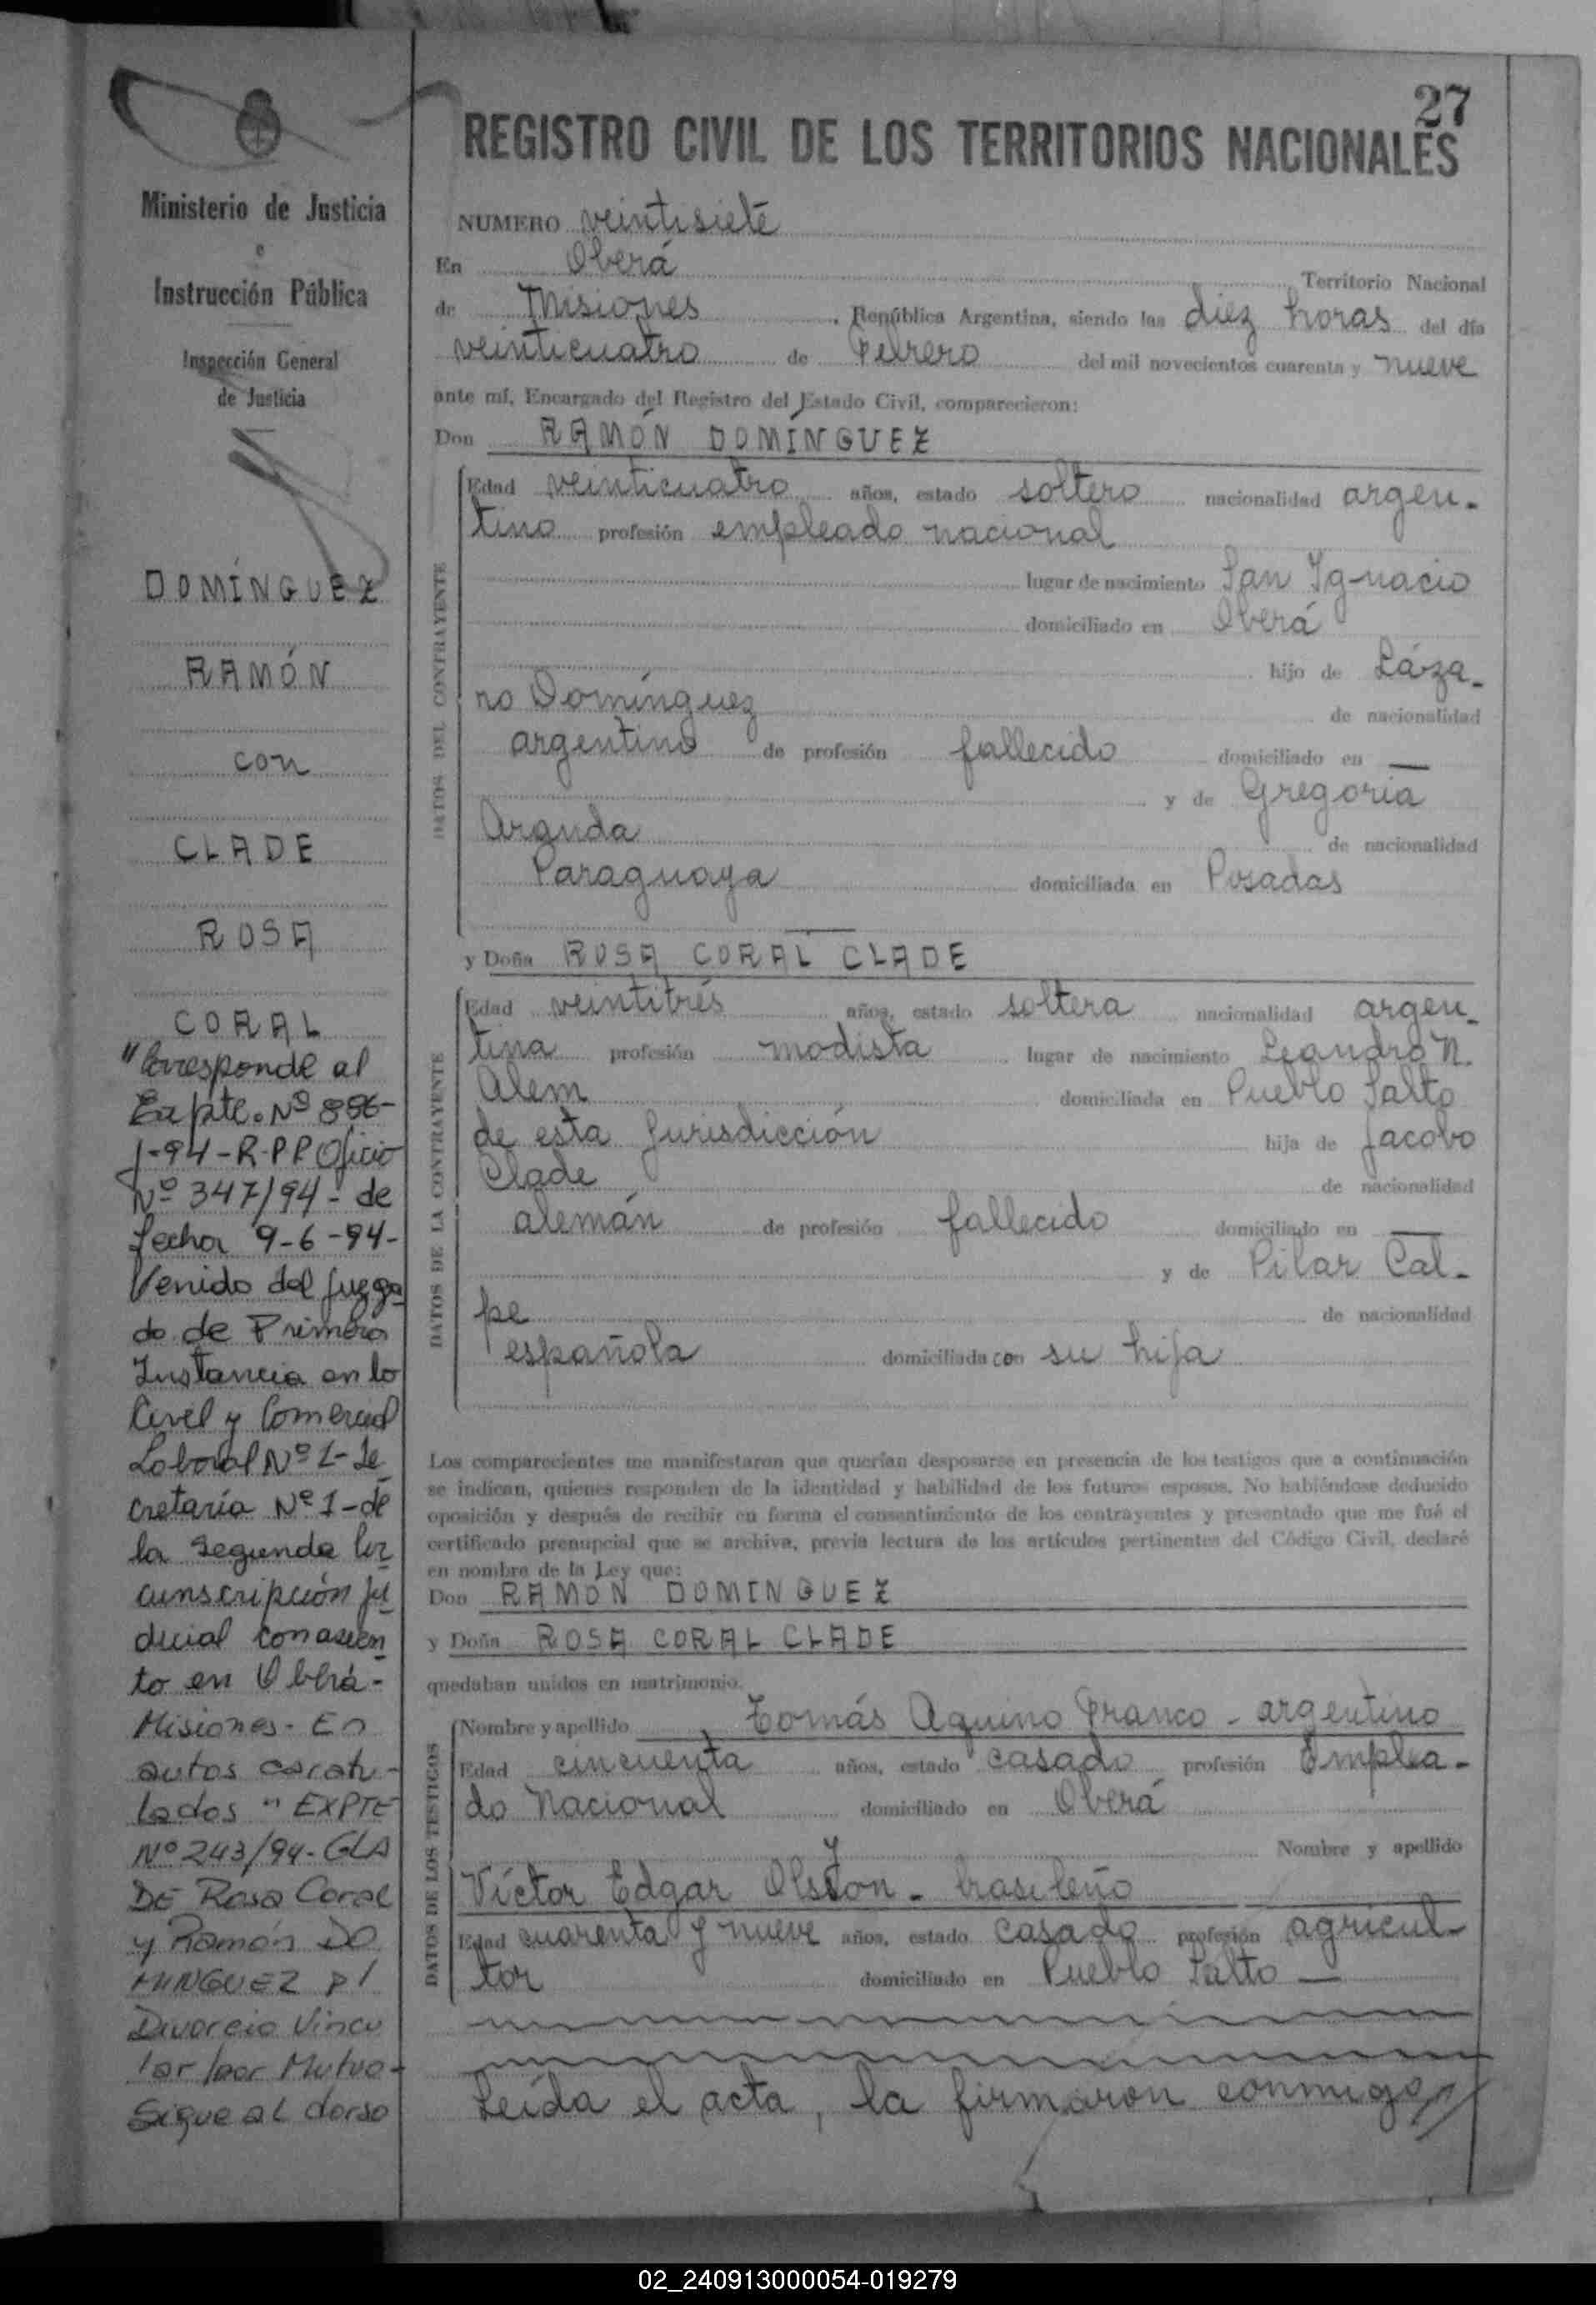 27
REGISTRO CIVIL DE LOS TERRITORIOS NACIONALES
Ministerio de Justicia
e
Instrucción Pública
Inspección General
de Justicia
DOMÍNGUEZ
RAMÓN
con
CLADE
ROSA
CORAL
"Corresponde al
Expte. Nº 886-
J-94-R-P.P Oficio
Nº 347/94- de
fecha 9-6-94-
Venido del Juzga
do de Primera
Instancia en lo
Civel y Comercial
Laboral Nº 1-Se
cretaría Nº 1-de
la Segunda Cir
cunscripción Ju
dicial con asien
to en Oberá-
Misiones- En
autos caratu-
lados "EXPTE
Nº 243/94- CLA
DE Rosa Coral
y Ramón DO
MINGUEZ p/
Divorcio Vincu
lar por Mutuo-
Sigue al dorso
NUMERO veintisiete
En Oberá Territorio Nacional
de Misiones, República Argentina, siendo las diez horas del día
veinticuatro de Febrero del mil novecientos cuarenta y nueve
ante mí, Encargado del Registro del Estado Civil, comparecieron:
Don RAMÓN DOMÍNGUEZ
DATOS DEL CONTRAYENTE
Edad veinticuatro años, estado soltero nacionalidad argen-
tino profesión empleado nacional
lugar de nacimiento San Ignacio
domiciliado en Oberá
hijo de Láza-
ro Domínguez de nacionalidad
argentino de profesión fallecido domiciliado en —
y de Gregoria
Aranda de nacionalidad
Paraguaya domiciliada en Posadas
y Doña ROSA CORAL CLADE
DATOS DE LA CONTRAYENTE
Edad veintitrés años, estado soltera nacionalidad argen-
tina profesión modista lugar de nacimiento Leandro N.
Alem domiciliada en Pueblo Salto
de esta Jurisdicción hija de Jacobo
Clade de nacionalidad
alemán de profesión fallecido domiciliado en —
y de Pilar Cal-
pe de nacionalidad
española domiciliada con su hija
Los comparecientes me manifestaron que querían desposarse en presencia de los testigos que a continuación
se indican, quienes responden de la identidad y habilidad de los futuros esposos. No habiéndose deducido
oposición y después de recibir en forma el consentimiento de los contrayentes y presentado que me fué el
certificado prenupcial que se archiva, previa lectura de los artículos pertinentes del Código Civil, declaré
en nombre de la Ley que:
Don RAMÓN DOMINGUEZ
y Doña ROSA CORAL CLADE
quedaban unidos en matrimonio.
DATOS DE LOS TESTIGOS
Nombre y apellido Tomás Aquino Franco - argentino
Edad cincuenta años, estado casado profesión Emplea-
do Nacional domiciliado en Oberá
Nombre y apellido
Víctor Edgar - brasileño
Edad cuarenta y nueve años, estado casado profesión agricul-
tor domiciliado en Pueblo Salto —
Leída el acta, la firmaron conmigo,
02_240913000054-019279